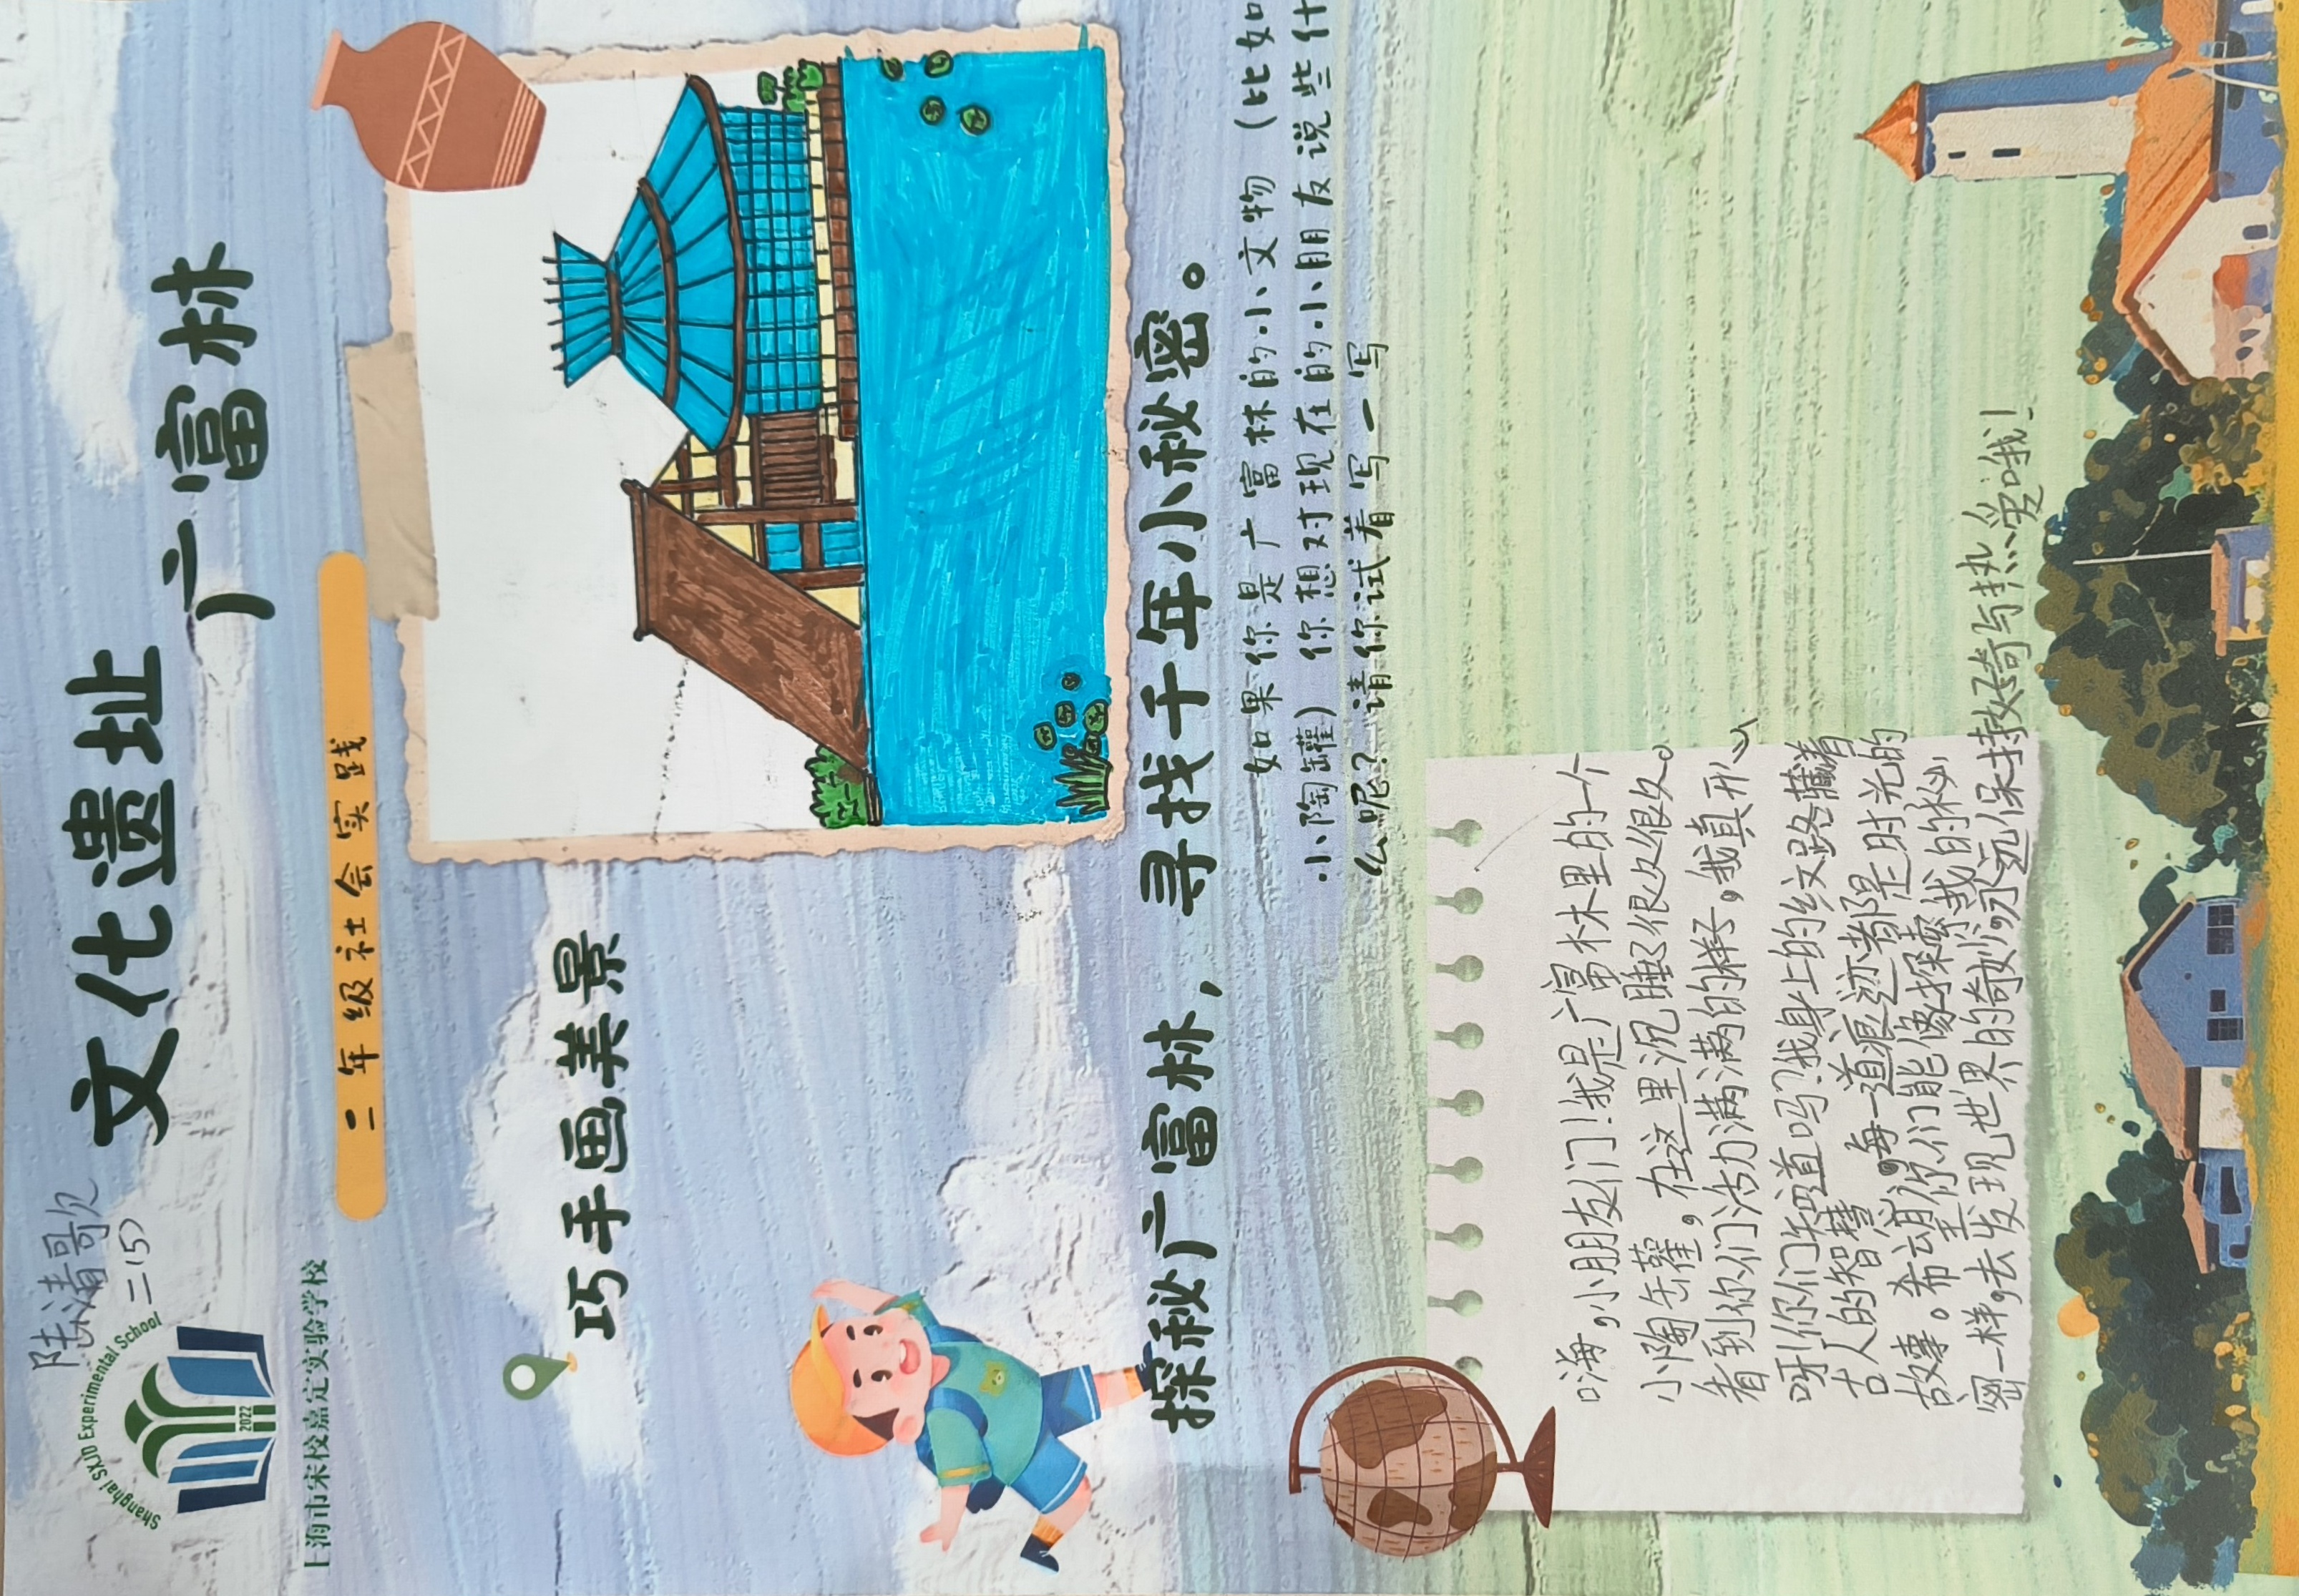 陆渚歌
二(5)
Shanghai SXJD Experimental School
2022
上海市宋校嘉定实验学校
文化遗址 广富林
二年级社会实践
巧手画美景
探秘广富林，寻找千年小秘密。
如果你是广富林的小文物（比如
小陶罐）你想对现在的小朋友说些什
么呢？请你试着写一写
嗨，小朋友们！我是广富林里的一个
小陶罐，在这里沉睡了很久很久。
看到你们活力满满的样子，我真开心
呀！你们知道吗？我身上的纹路藏着
古人的智慧，每一道痕迹都是时光的
故事。希望你们能像探索我的秘
密一样，去发现世界的奇妙，永远保持好奇与热爱哦！